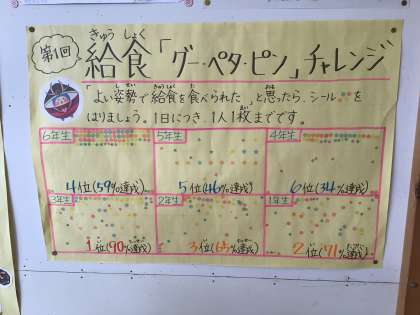 第1回
きゅう しょく
給食「グー・ペタ・ピン」チャレンジ
「よい姿勢で給食を食べられた」と思ったら、シールを
はりましょう。1日につき、1人1枚までです。
6年生 5年生 4年生
4位(59%達成) 5位(46%達成) 6位(34%達成)
3年生 2年生 1年生
1位(90%達成) 3位(65%達成) 2位(71%達成)